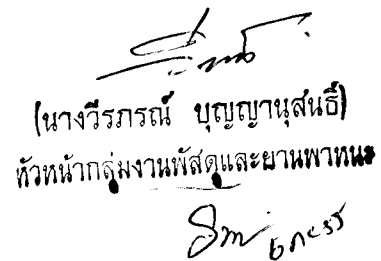 (นางวีรภรณ์ บุญญานุสนธิ์)
หัวหน้ากลุ่มงานพัสดุและยานพาหนะ